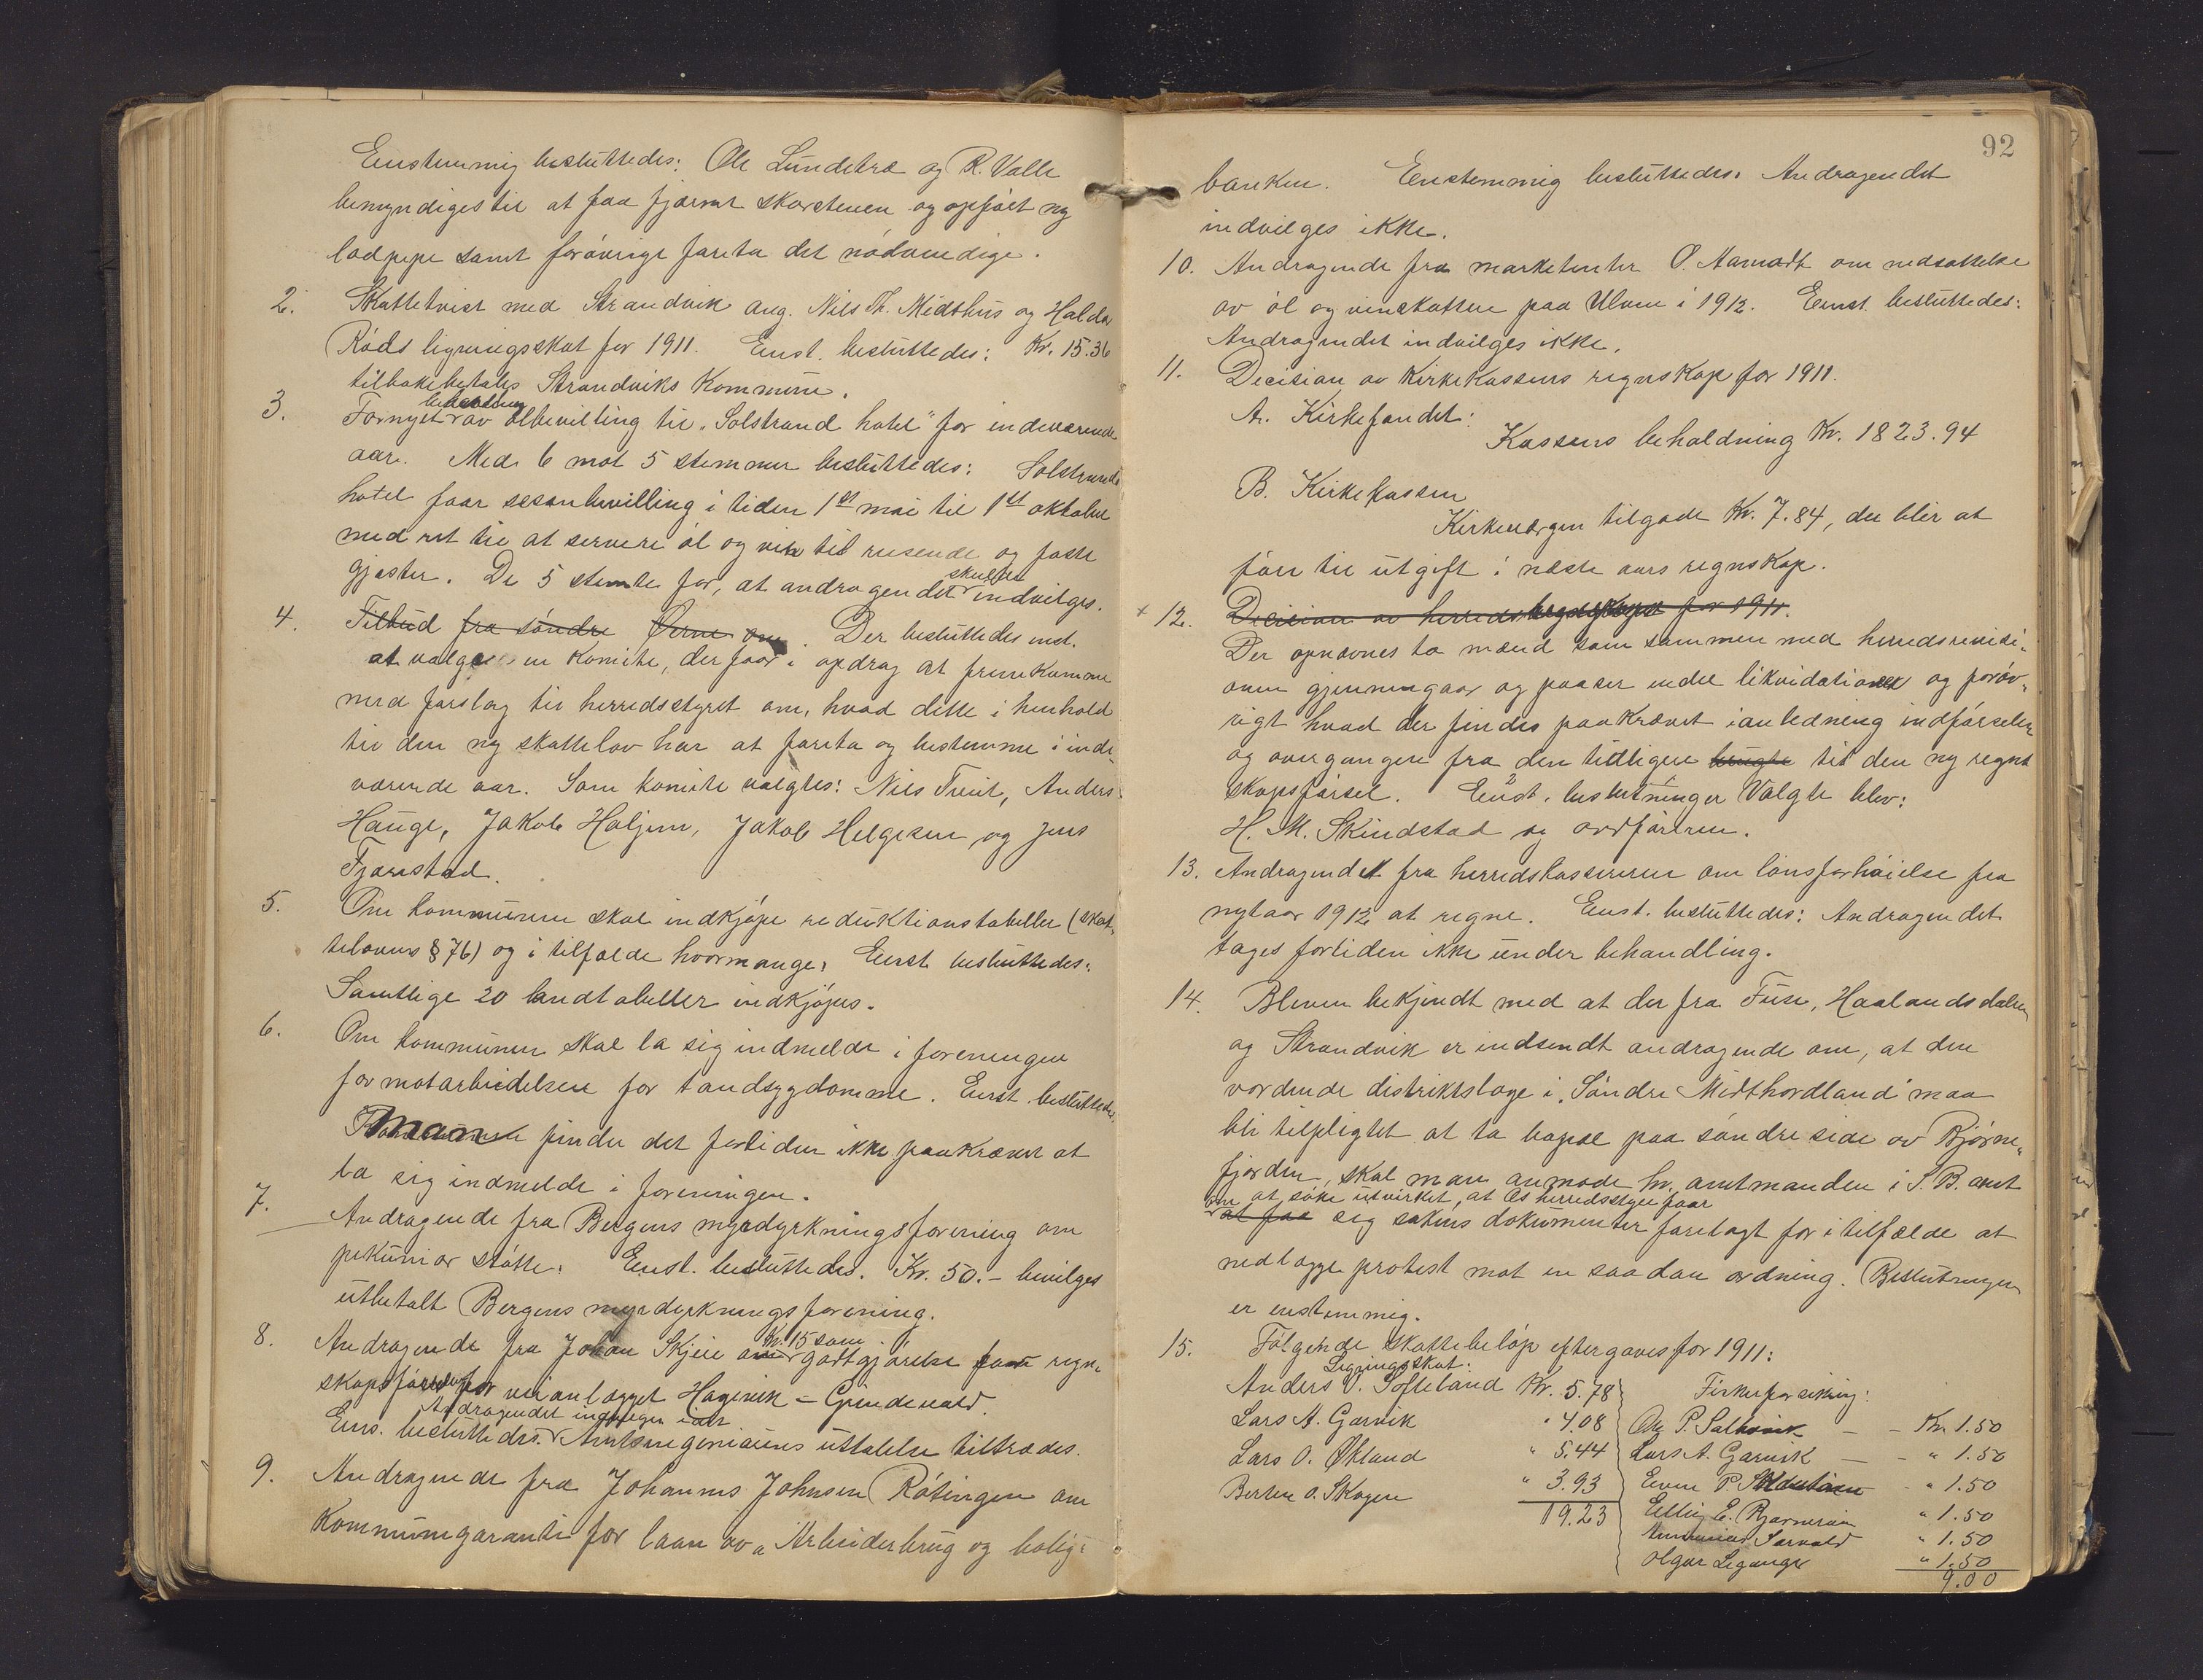 Enstemmig besluttedes: Ole Lundetræ og R. Valle
bemyndiges til at faa fjærnet skorstenen og opfört ny
lodpipe samt forövrigt foreta det nödvendige.
2. Skattetvist med Strandvik ang. Nils Th. Midthus og Haldor
Röds ligningsskat for 1911. Enst. besluttedes: Kr. 15.36
tilbakebetales Strandviks Kommune.
behandling
3. Fornyet av ölbevilling til "Solstrand hotel" for indeværende
aar. Med 6 mot 5 stemmer besluttedes: Solstrand
hotel faar sesonbevilling i tiden 1st mai til 1st oktober
med ret til at servere öl og vin til reisende og faste
skulde
gjester. De 5 stemte for, at andragendet indvilges.
4. Tilbud fra söndre Øvre om. Der besluttedes enst.
at vælge en komite, der faar i opdrag at fremkomme
med forslag til herredsstyret om, hvad dette i henhold
til den ny skattelov har at foreta og bestemme i inde-
værende aar. Som komite valgtes: Nils Tveit, Anders
Hauge, Jakob Haljem, Jakob Helgesen og Jens
Fjærestad.
5. Om kommunen skal indkjöpe reduktionstabeller (skat-
telovens § 76) og i tilfælde hvormange. Enst. besluttedes:
Samtlige 20 landtabeller indkjöpes.
6. Om kommunen skal la sig indmelde i foreningen
for motarbeidelsen for tandsygdomme. Enst. besluttedes:
man finder det fortiden ikke paakrævet at
la sig indmelde i foreningen.
7. Andragende fra Bergens myrdyrkningsforening om
pekuniær stötte. Enst. besluttedes. Kr. 50.- bevilges
utbetalt Bergens myrdyrkningsforening.
Kr. 15 som
8. Andragende fra Johan Skjeie om godtgjörelse som regn-
skapsförer for veianlægget Hagevik - Grindevald.
Andragendet indvilges ikke
Ens. besluttedes. Amtsingeniörens uttalelse tiltrædes.
9. Andragende fra Johannes Johnsen Rötingen om
Kommunegaranti for laan av "Arbeiderbrug og bolig-
92
banken. Enstemmig besluttedes. Andragendet
indvilges ikke.
10. Andragende fra marketenter O. Aamodt om nedsættelse
av öl og vinskatten paa Ulven i 1912. Enst. besluttedes:
Andragendet indvilges ikke.
11. Decision av Kirkekassens regnskap for 1911.
A. Kirkefondet:
Kassens beholdning Kr. 1823.94
B. Kirkekassen
Kirkevergen tilgode Kr. 7.84, der blir at
före til utgift i næste aars regnskap.
+ 12. Decision av herredsregnskapet for 1911.
Der opnævnes to mænd som sammen med herredsrevisi-
onen gjennemgaar og paaser endel likvidationer og foröv-
rigt hvad der findes paakrævet i anledning indförselen
og overgangen fra den tidligere brugte til den ny regn-
skapsförsel. Enst. beslutninger Valgte blev:
H. M. Skindstad og ordföreren.
13. Andragendet fra herredskassereren om lönsforhöielse fra
nytaar 1912 at regne. Enst. besluttedes: Andragendet
tages fortiden ikke under behandling.
14. Bleven bekjendt med at der fra Fuse, Haalandsdalen
og Strandvik er indsendt andragende om, at den
vordende distriktslæge i "Söndre Midthordland" maa
bli tilpligtet at ta bopæl paa söndre side av Björne-
fjorden, skal man anmode hr. amtmanden i S. B. amt
om at söke utvirket, at Os herredsstyre faar
at faa sig sakens dokumenter forelagt for i tilfælde at
nedlægge protest mot en saadan ordning. Beslutningen
er enstemmig.
15. Fölgende skattebelöp eftergaves for 1911:
Ligningsskat:
Anders O. Softeland Kr. 5.78 Firkeforsikring:
Lars A. Garvik " 4.08 Ole P. - - Kr. 1.50
Lars O. Økland " 5.44 Lars A. Garvik - - " 1.50
Berthe O. Skogen " 3.93 Even P. " 1.50
19.23 Elling E. " 1.50
Sarvold " 1.50
Olgar Legange " 1.50
9.00